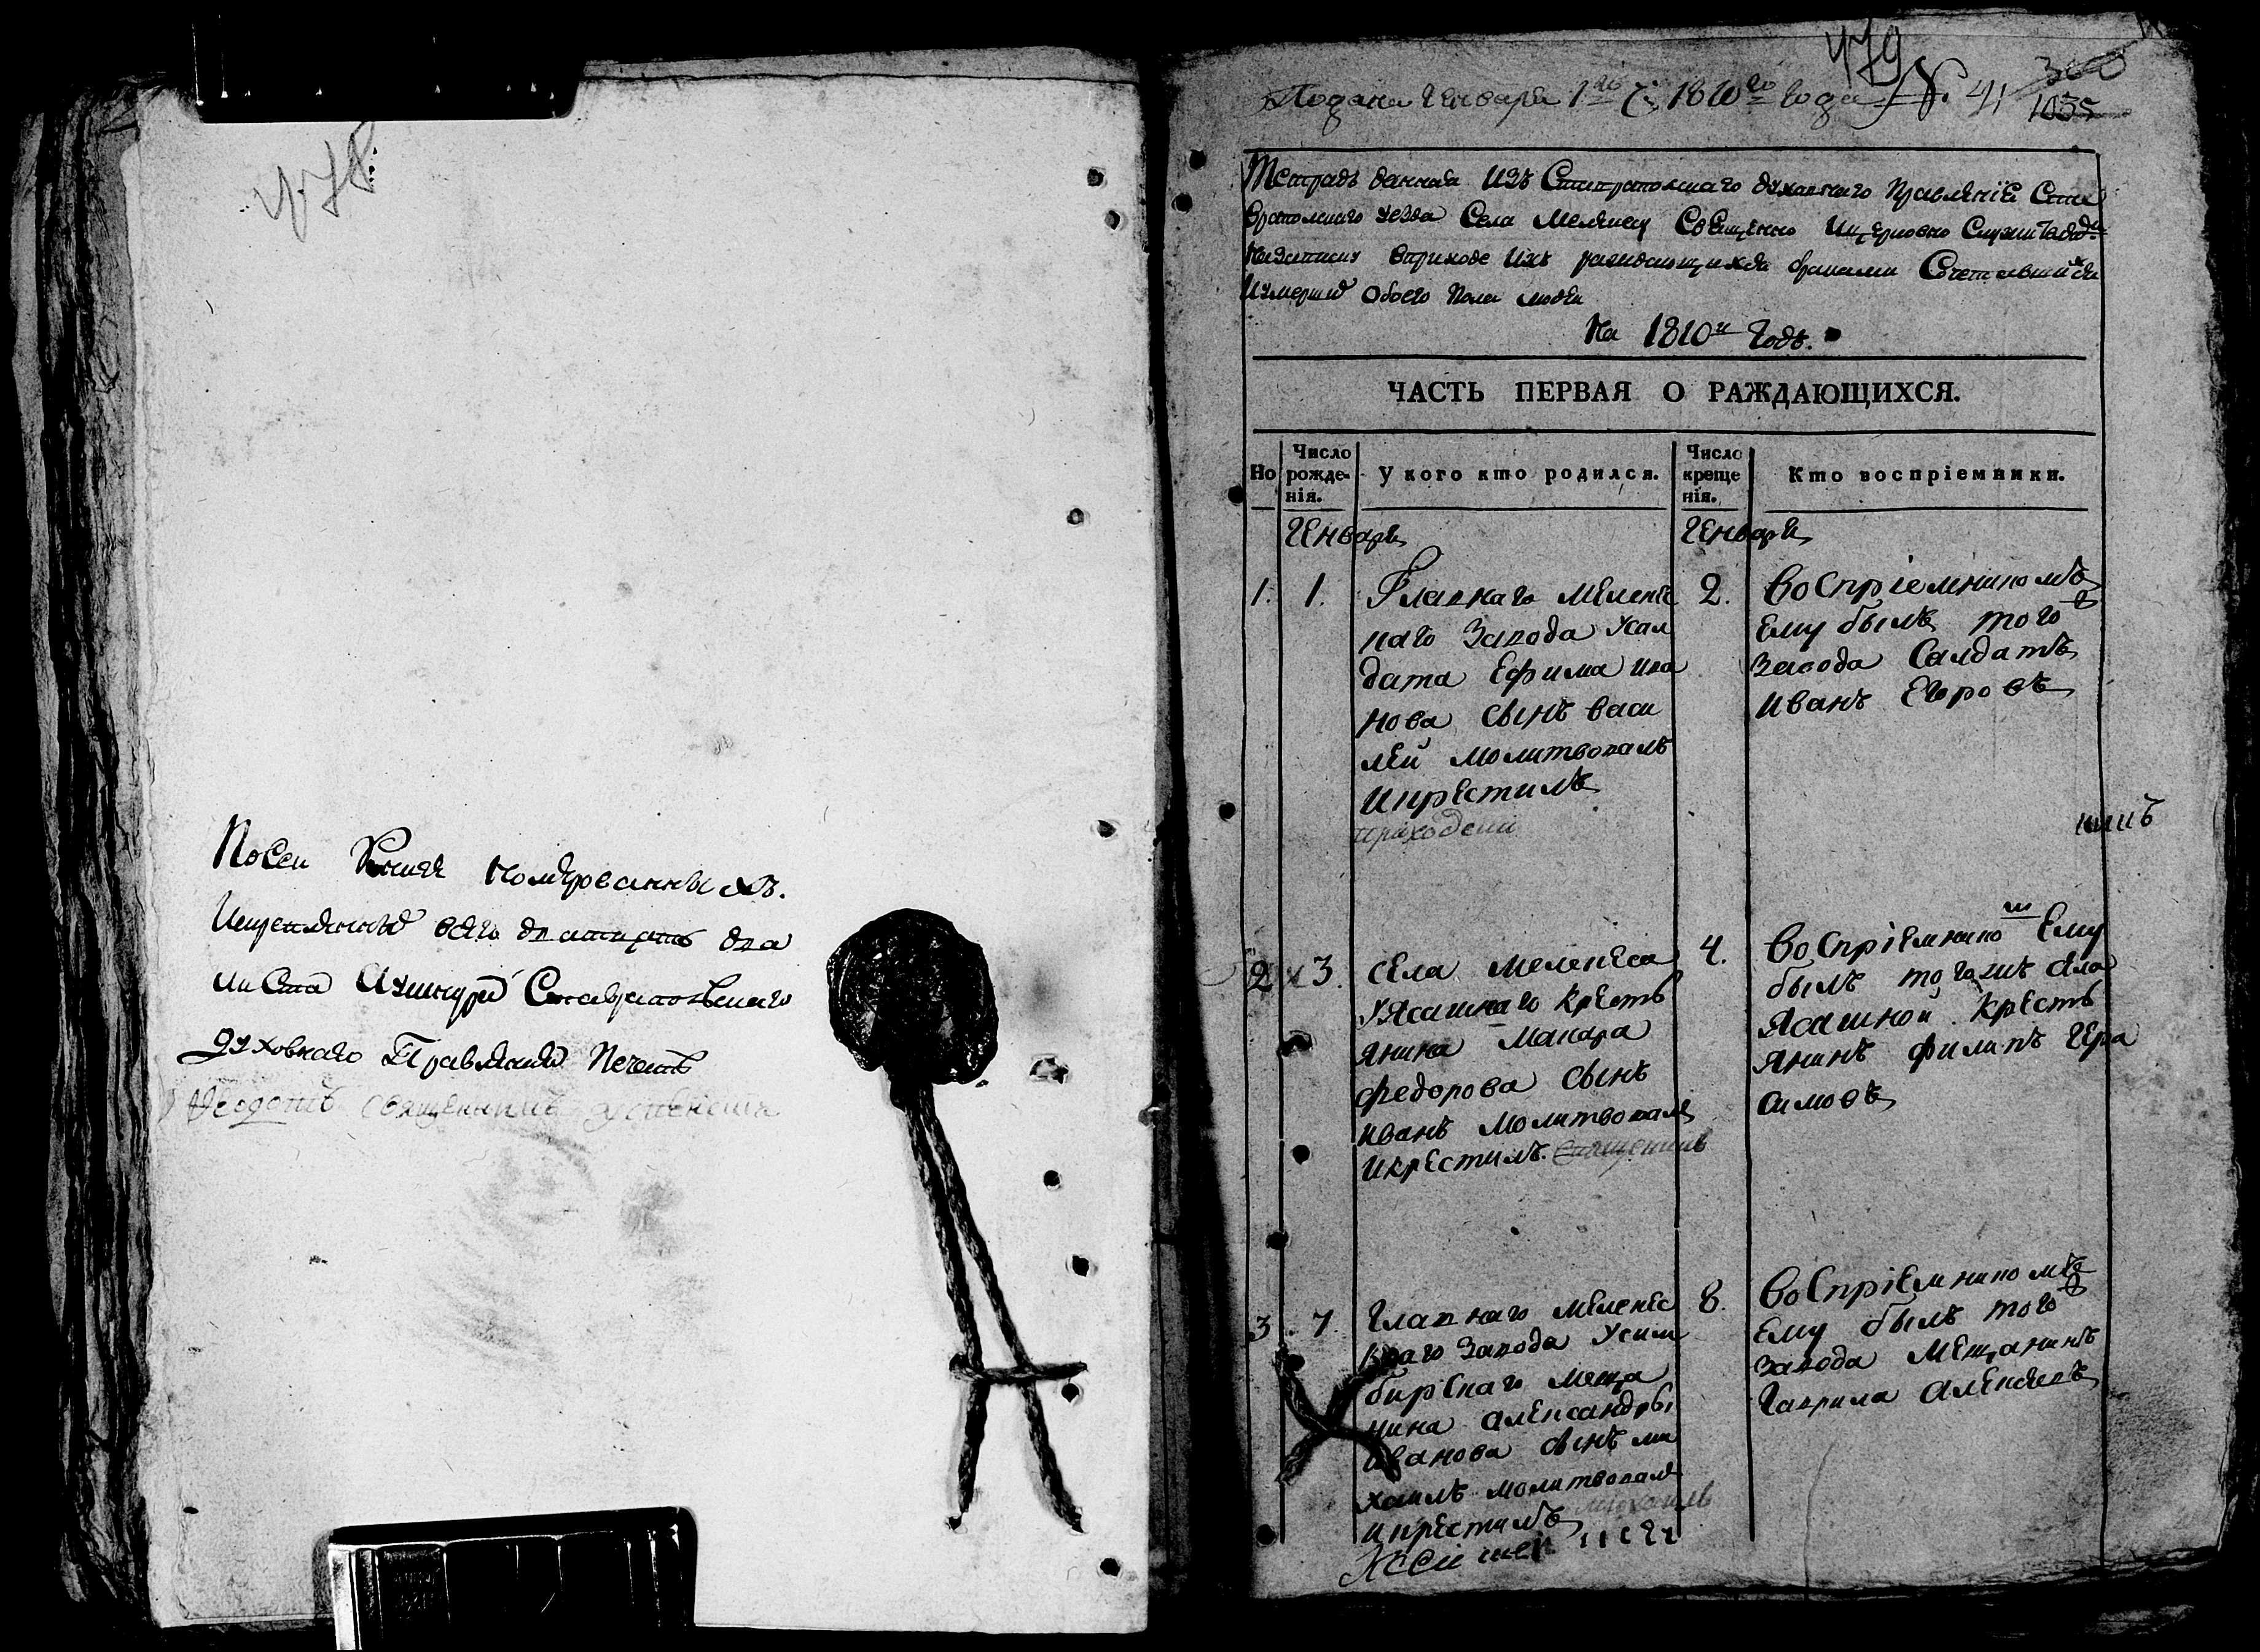 478
Посеи Книге номерованныхъ.
всего два
листа Ставропольскаго
духовнаго Правления Печать
479
Подана Генваря 1го 1810го года № 41
1035
Тетрадь данная Изъ Ставропольскаго духовнаго Правления Став
Уезда Села Мелекесу Священно Церковно
Назаписку вприходе Ихъ раждающихся браками Сочетавшихся
Обоего Пола людей
На 1810й Годъ.
ЧАСТЬ ПЕРВАЯ О РАЖДАЮЩИХСЯ.
Но
Число рожде- нія.
У кого кто родился.
Число креще нія.
Кто воспріемники.
Генваря
Генваря
1.
1.
Главнаго Мелеке
наго Завода Усал
дата Ефима Ива
нова сынъ Васи
лей молитвовалъ
Икрестилъ
2.
Воспріемникомъ
Ему былъ того
Завода Салдатъ
Иванъ Егоровъ
2
3.
Села Мелекеса
Уясашнаго Кресть
янина Макара
Федорова сынъ
Иванъ Молитвовалъ
Икрестилъ.
4.
Воспріемником Ему
былъ тогожъ села
Ясашной Кресть
янинъ Филипъ Гера
симовъ
3
7.
Главнаго Мелекес
каго Завода Усим
бирскаго Меща
нина Александры
Иванова сынъ ми
хаилъ молитвовалъ
икрестилъ
8.
Воспріемникомъ
Ему былъ того
Завода Мещанинъ
Гаврила Алексеевъ